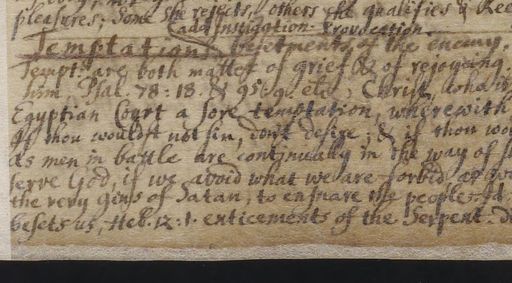 pleasures; Some she rejects, others she qualifies & 
(add Instigation. Provocation.
Temptations, besetments, of the enemy,
Tempt: are both matter of grief & of rejoycing
Psal. 78: 18. & 95. 9. etc; Christ
Egyptian Court a sore temptation, wherewith
If thou wouldst not sin, don't desire; & if thou
As men in battle are continually in the way of
serve God, if we avoid what we are forbid
the very Gins of Satan, to ensnare the people
besets us, Heb. 12: 1. enticements of the Serpent.